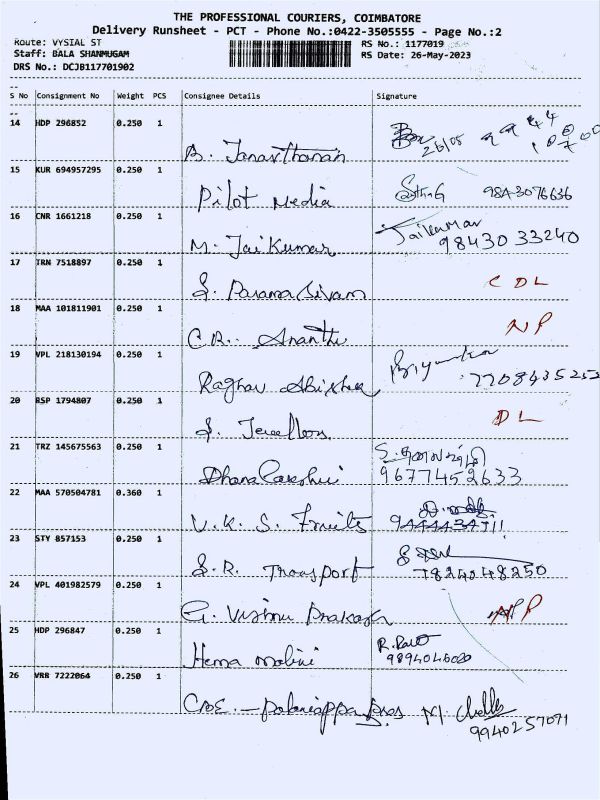 THE PROFESSIONAL COURIERS, COIMBATORE
Delivery Runsheet - PCT - Phone No.:0422-3505555 - Page No.:2
Route: VYSIAL ST RS No.: 1177019
Staff: BALA SHANMUGAM RS Date: 26-May-2023
DRS No.: DCJB117701902
S No Consignment No Weight PCS Consignee Details Signature
14 HDP 296852 0.250 1
B. Janarthanan 26/05
15 KUR 694957295 0.250 1
Pilot Media 9843076636
16 CNR 1661218 0.250 1
M. Jai Kumar Jaikumar
98430 33240
17 TRN 7518897 0.250 1
S. Parama Sivam CDL
18 MAA 101811901 0.250 1
C.R. Ananthi NP
19 VPL 218130194 0.250 1
Raghav 7708435253
20 RSP 1794807 0.250 1
S. Jewellers DL
21 TRZ 145675563 0.250 1
Dhanalakshmi 9677452633
22 MAA 570504781 0.360 1
V.K.S. Fruits
23 STY 857153 0.250 1
S.R. Transport 7824048250
24 VPL 401982579 0.250 1
G. Vishnu Prakash NP
25 HDP 296847 0.250 1
Hema malini
26 VRB 7222064 0.250 1
99402 57071